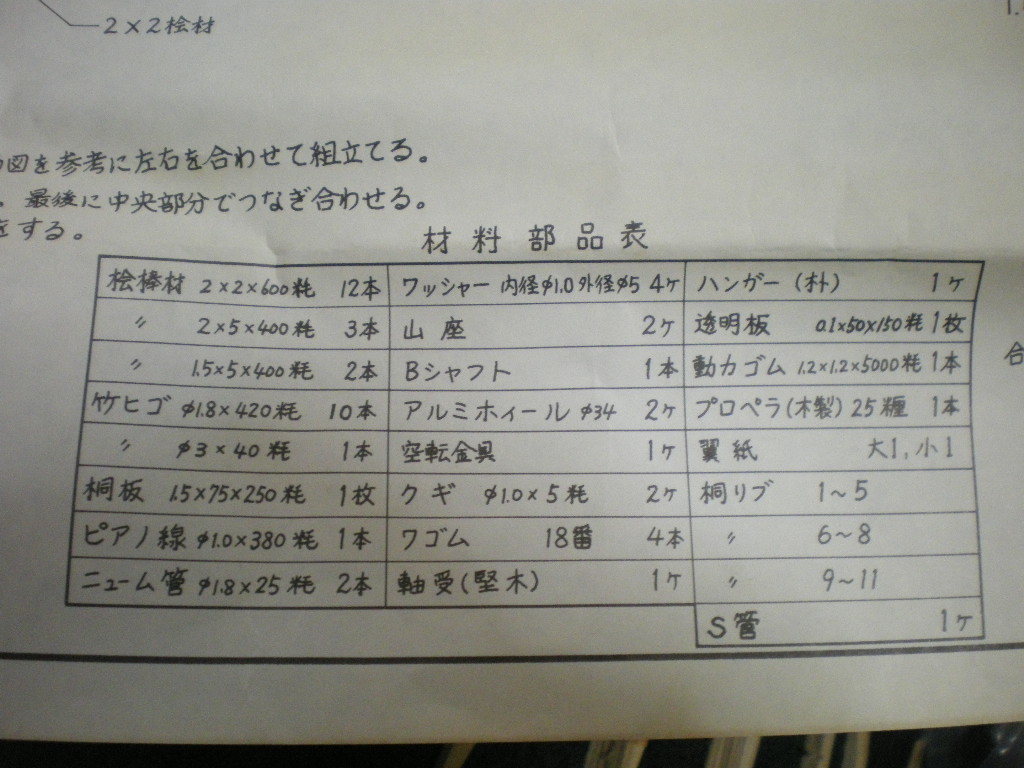 2×2桧材
図を参考に左右を合わせて組立てる。
最後に中央部分でつなぎ合わせる。
をする。
材料部品表
桧棒材 2×2×600粍 12本
〃 2×5×400粍 3本
〃 1.5×5×400粍 2本
竹ヒゴ φ1.8×420粍 10本
〃 φ3×40粍 1本
桐板 1.5×75×250粍 1枚
ピアノ線 φ1.0×380粍 1本
ニューム管 φ1.8×25粍 2本
ワッシャー 内径φ1.0外径φ5 4ケ
山座 2ケ
Bシャフト 1本
アルミホィール φ34 2ケ
空転金具 1ケ
クギ φ1.0×5粍 2ケ
ワゴム 18番 4本
軸受(堅木) 1ケ
ハンガー(朴) 1ケ
透明板 0.1×50×150粍 1枚
動力ゴム 1.2×1.2×5000粍 1本
プロペラ(木製) 25糎 1本
翼紙 大1,小1
桐リブ 1~5
〃 6~8
〃 9~11
S管 1ケ
合